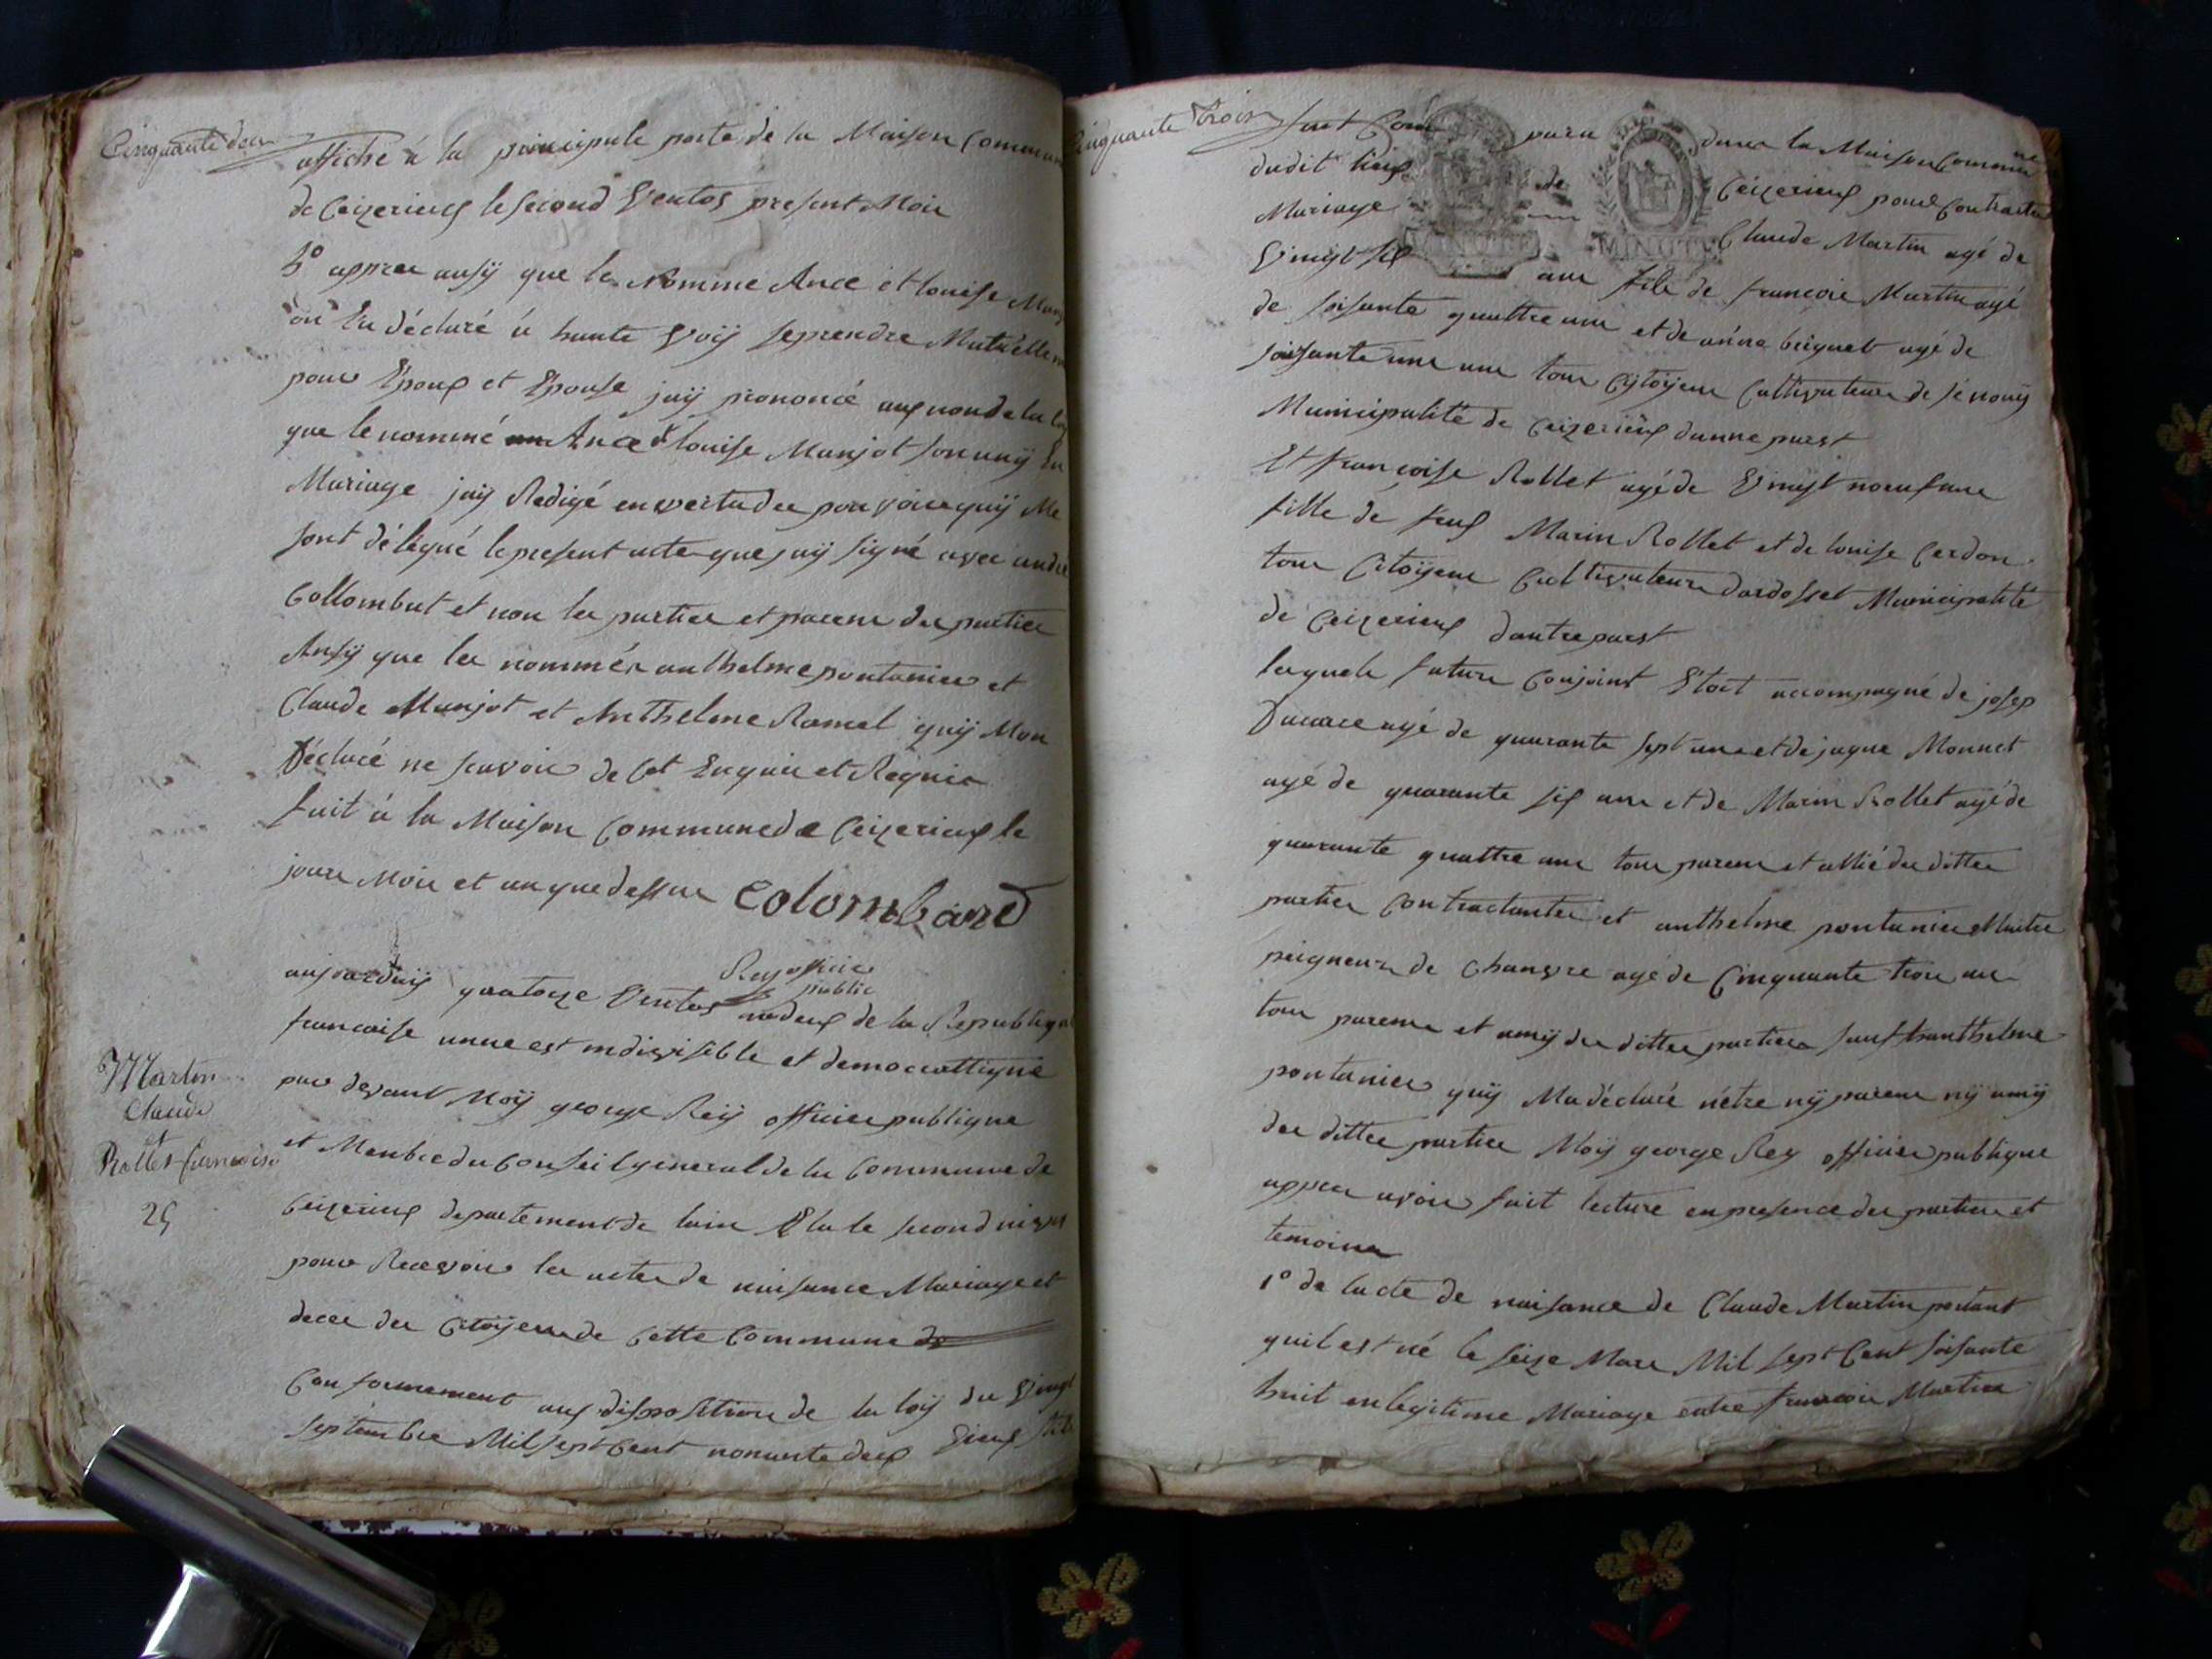 Cinquante deux
affiche à la principale porte de la Maison Commun
de Ceizerieux le second Ventos present Mois
3º appres ausÿ que le Nomme Ance et louise Manj
on En déclaré à haute Voÿ se prendre Mutuellem
pour Epoux et Epouse jaÿ prononcé aux nom de la loy
que le nommé Ance et louise Manjot son unÿ En
Mariage jaÿ Redigé en vertu des pouvoirs quÿ Me
sont délégué le present acte que jaÿ signé avec andré
Collombat et non les parties et parens des parties
Ansÿ que les nommés anthelme pontanier et
Claude Manjot et Anthelme Ramel quÿ Mon
Déclaré ne scavoir de Cet Enquis et Requis
fait à la Maison Commune de Ceizerieux le
jours Mois et an que dessus Colombard
Rey officier
public
aujourduÿ quatorze Ventos andeux de la Republiq
francaise unne est indivisible et democrattique
par devant Moÿ george Reÿ officier publique
et Menbre du Conseil general de la Commune de
Ceizerieux departement de lain Elu le second nivos
pour Recevoir les actes de naisance Mariage et
deces des Citoÿens de Cette Commune
Conformement aux disposition de la loÿ du Vingt
septembre Mil sept Cent nonante deux Vieux stile
Martin
Claude
Rollet francoise
25
Cinquante Trois
sont Com paru dans la Maison Commune
dudit lieux de Ceizerieux pour Contracter
Mariage Claude Martin agé de
Vingt six ans fils de francois Martin agé
MINUTE MINUTE
de soisante quattre ans et de anne briquet agé de
soissante une ans tous Cÿtoÿens Cultivateurs de jenouÿ
Municipalité de Ceizerieux dunne parst
Et francoise Rollet agé de Vingt noeuf ans
fille de feux Marin Rollet et de louise Cerdon
tous Citoÿens Cultivateurs dardosset Municipalité
de Ceizerieux dautre parst
lesquels futurs Conjoint Etoit accompagné de josep
agé de quarante sept ans et de jaque Monnet
agé de quarante six ans et de Marin Rollet agé de
quarante quattre ans tous parens et allié des dittes
parties Contractantes et anthelme pontanier Maitre
peigneur de Chanvre agé de Cinquante trois ans
tous parens et amÿ des dittes parties sauf anthelme
pontanier quÿ Ma déclaré nétre nÿ parens nÿ amÿ
des dittes parties Moÿ george Rey officier publique
appres avoir fait lecture en presence des parties et
temoins
1º de lacte de naisance de Claude Martin portant
quil est né le seize Mars Mil sept Cent soisante
huit en legitime Mariage entre francois Martin